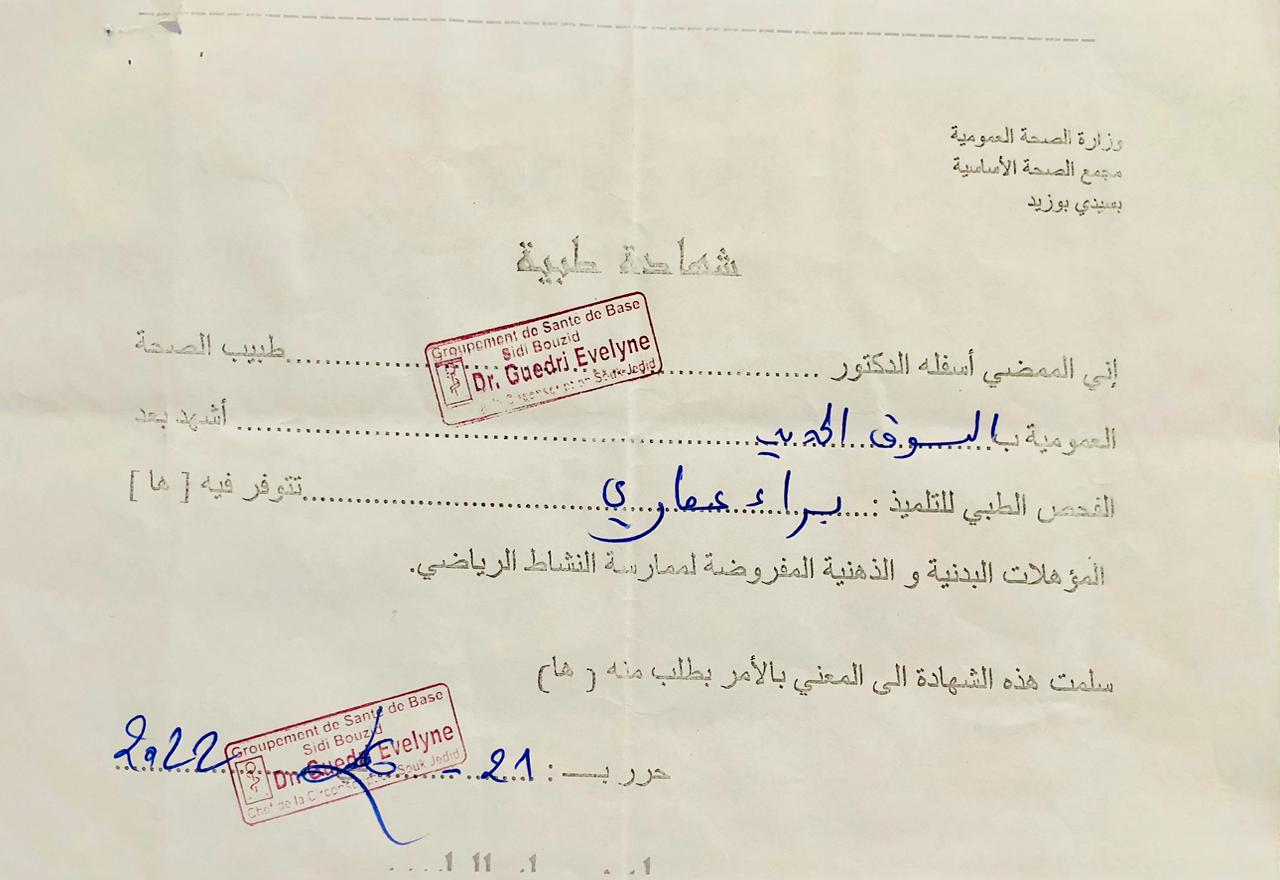 وزارة الصحة العمومية
مجمع الصحة الأساسية
بسيدي بوزيد
شهادة طبية
Groupement de Santé de Base
Sidi Bouzid
Dr. Guedri Evelyne
Souk-Jedid
إني الممضي أسفله الدكتور .................... طبيب الصحة
العمومية بالسوق الجديد .................... أشهد بعد
الفحص الطبي للتلميذ : براء عماري .................... تتوفر فيه [ ها ]
المؤهلات البدنية و الذهنية المفروضة لممارسة النشاط الرياضي.
سلمت هذه الشهادة الى المعني بالأمر بطلب منه ( ها)
Groupement de Santé de Base
Sidi Bouzid
Dr. Guedri Evelyne
Chef de la Circonscription Souk Jedid
حرر بـــ : 21 - 2022